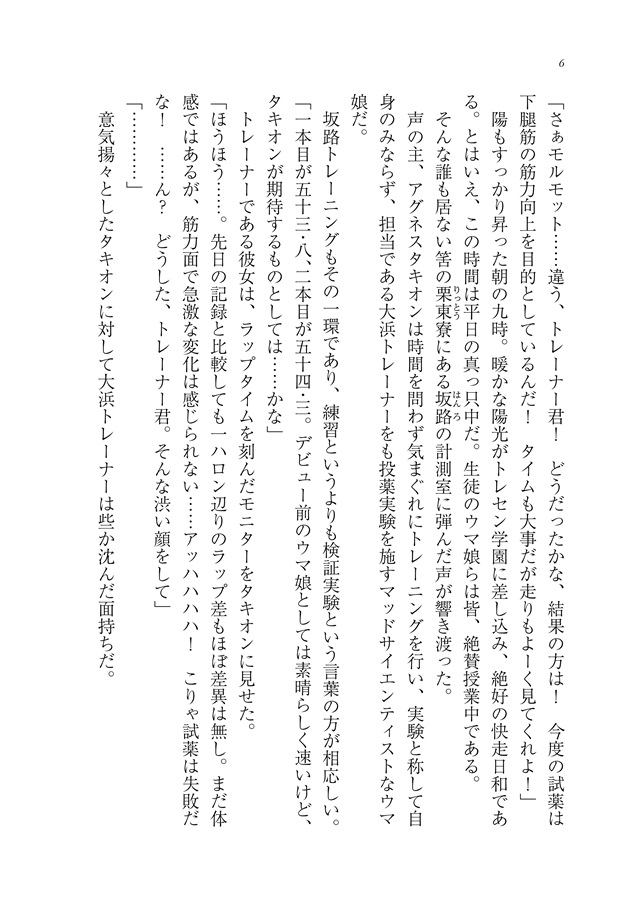 6
「さぁモルモット……違う、トレーナー君！　どうだったかな、結果の方は！　今度の試薬は
下腿筋の筋力向上を目的としているんだ！　タイムも大事だが走りもよーく見てくれよ！」
　陽もすっかり昇った朝の九時。暖かな陽光がトレセン学園に差し込み、絶好の快走日和であ
る。とはいえ、この時間は平日の真っ只中だ。生徒のウマ娘らは皆、絶賛授業中である。
　そんな誰も居ない筈の栗東寮にある坂路の計測室に弾んだ声が響き渡った。
　声の主、アグネスタキオンは時間を問わず気まぐれにトレーニングを行い、実験と称して自
身のみならず、担当である大浜トレーナーをも投薬実験を施すマッドサイエンティストなウマ
娘だ。
　坂路トレーニングもその一環であり、練習というよりも検証実験という言葉の方が相応しい。
「一本目が五十三・八、二本目が五十四・三。デビュー前のウマ娘としては素晴らしく速いけど、
タキオンが期待するものとしては……かな」
　トレーナーである彼女は、ラップタイムを刻んだモニターをタキオンに見せた。
「ほうほう……。先日の記録と比較しても一ハロン辺りのラップ差もほぼ差異は無し。まだ体
感ではあるが、筋力面で急激な変化は感じられない……アッハハハハ！　こりゃ試薬は失敗だ
な！　……ん？　どうした、トレーナー君。そんな渋い顔をして」
「…………」
　意気揚々としたタキオンに対して大浜トレーナーは些か沈んだ面持ちだ。
りっとう
はんろ